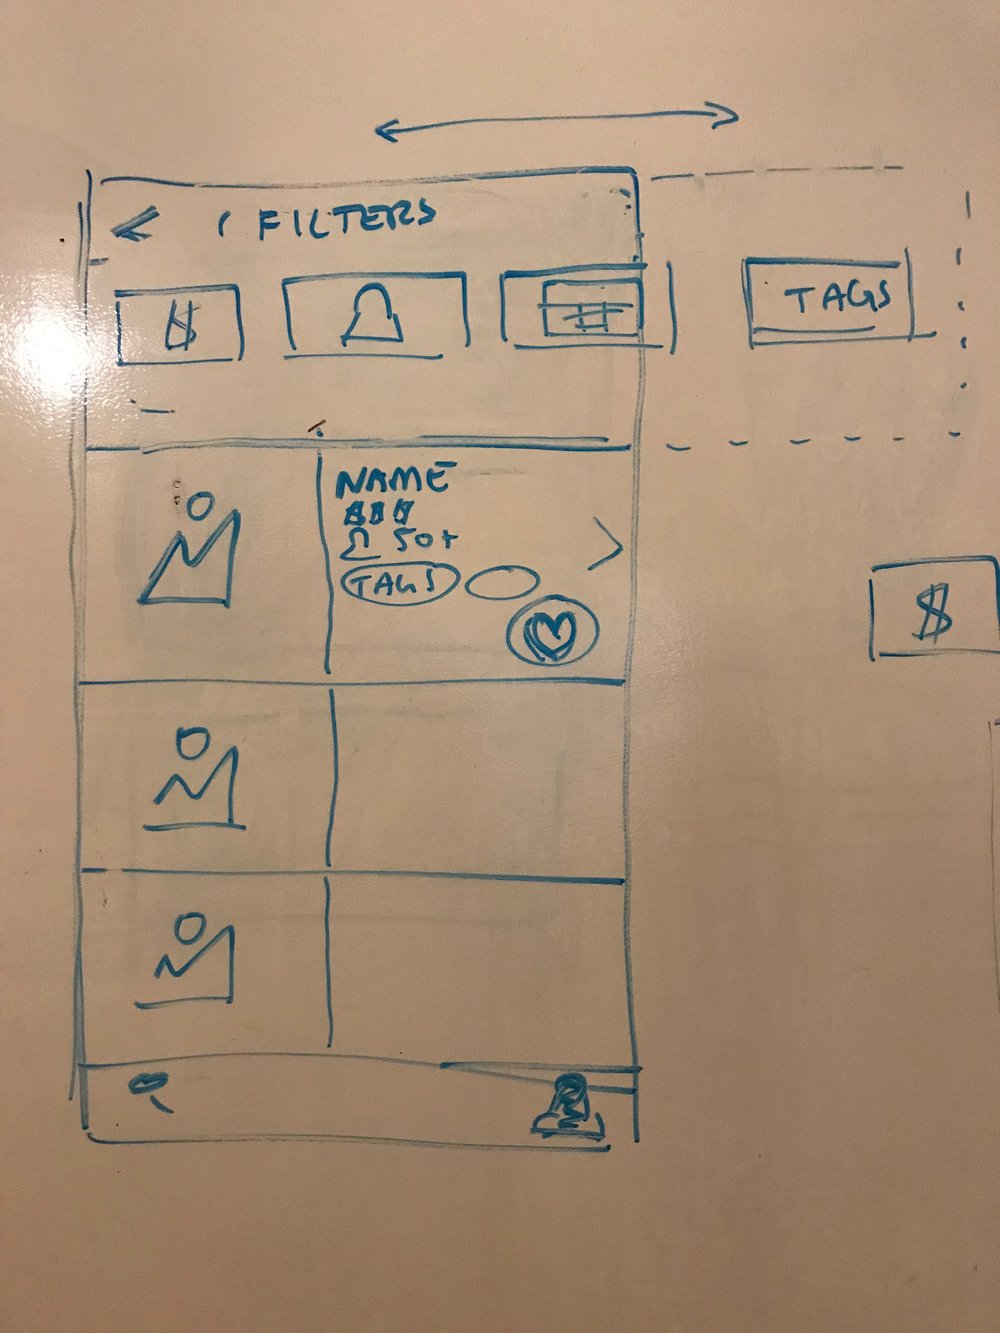 FILTERS
$
TAGS
NAME
$$$
50+
TAGS
$